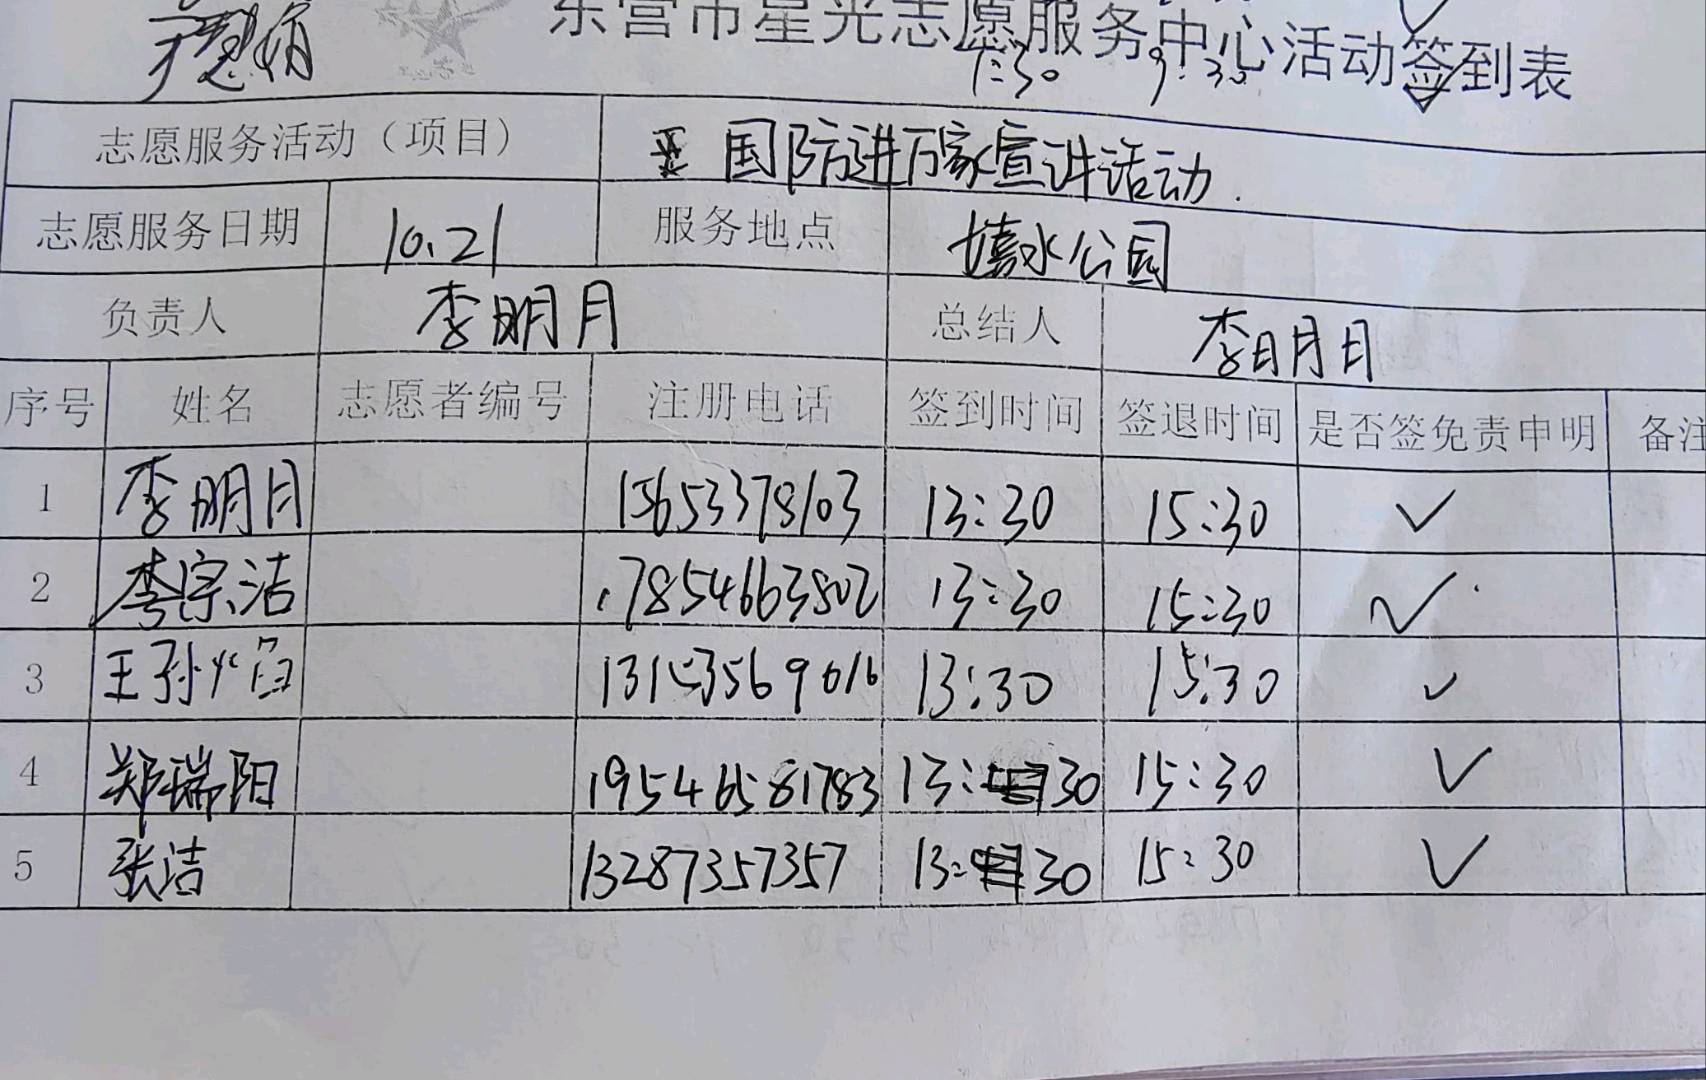 东营市星光志愿服务中心活动签到表
1:30 9:30
志愿服务活动（项目） 国防进万家宣讲活动.
志愿服务日期 10.21 服务地点 嬉水公园
负责人 李明月 总结人 李明月
序号 姓名 志愿者编号 注册电话 签到时间 签退时间 是否签免责申明 备注
1 李明月 15653378103 13:30 15:30 ✓
2 李宗洁 17854663802 13:30 15:30 ✓
3 王孙 13:30 15:30 ✓
4 郑瑞阳 19546581783 13:30 15:30 ✓
5 张洁 13287357357 13:30 15:30 ✓